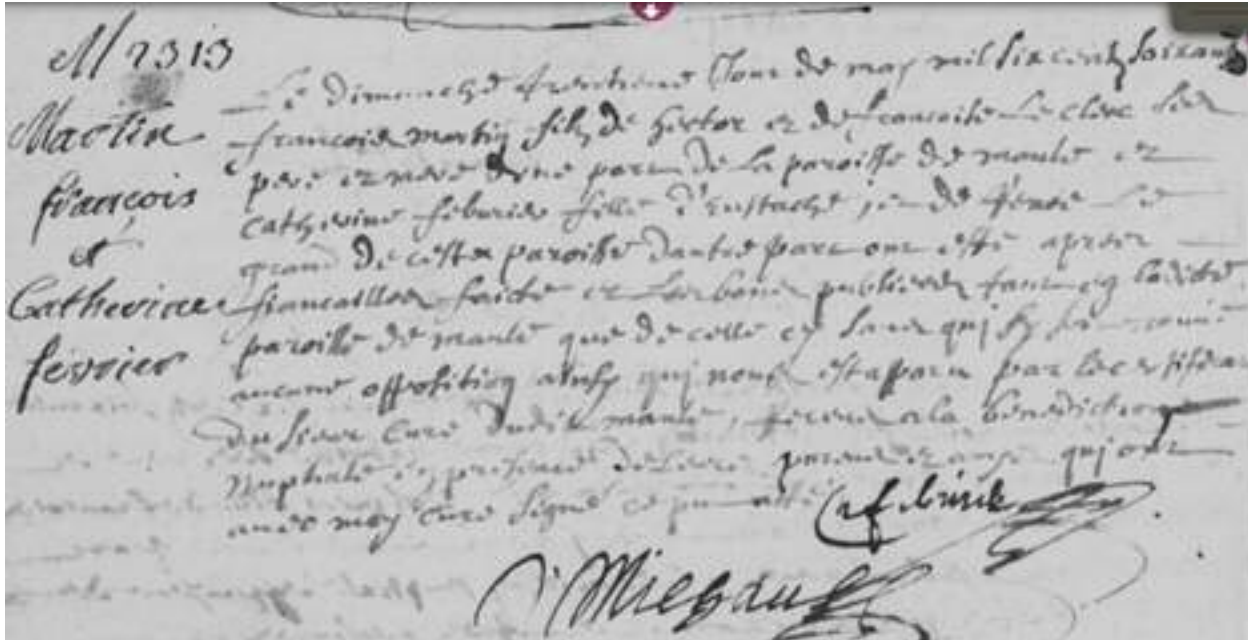 M 2313
Martin
françois
et
Catherine
fevrier
Le dimanche trentieme Jour de may mil six centz soixante
francois martin filz de hector et de francoise Le clerc ses
pere et mere d'une part de la paroisse de manté et
catherine feburier fille d'Eustache, et de Le
grand de ceste paroisse d'autre part ont esté apres
fiancailles faicte et les bans publiees tant en ladicte
paroisse de manté que de celle cy sans qu'il
aucune opposition ainsy qui nous est aparu par le certificat
du sieur curé dudit manté, a la benediction
Nuptiale en presence de leurs parens et amis qui ont
avec moy curé signé ce
febvrier